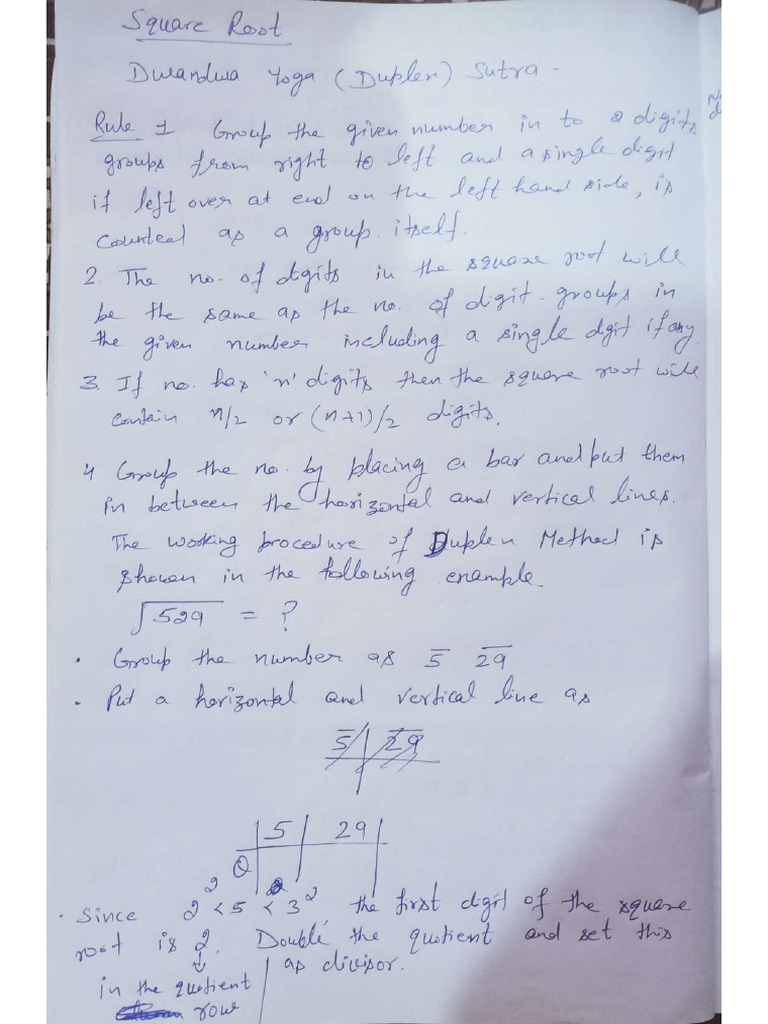 Square Root
Dwandwa Yoga (Duplex) Sutra -
Rule 1 Group the given number in to 2 digits
groups from right to left and a single digit
if left over at end on the left hand side, is
counted as a group itself.
2. The no. of digits in the square root will
be the same as the no. of digit groups in
the given number including a single dgit if any
3. If no. has 'n' digits then the square root will
contain n/2 or (n+1)/2 digits.
4 Group the no. by placing a bar and put them
in between the horizontal and vertical lines.
The working procedure of Duplex Method is
shown in the following example
√529 = ?
• Group the number as 5̅ 2̅9̅
• Put a horizontal and vertical line as
5̅ 2̅9̅
5 29
Q
• Since 2² < 5 < 3² the first digit of the square
root is 2. Double the quotient and set this
as divisor.
in the quotient
row